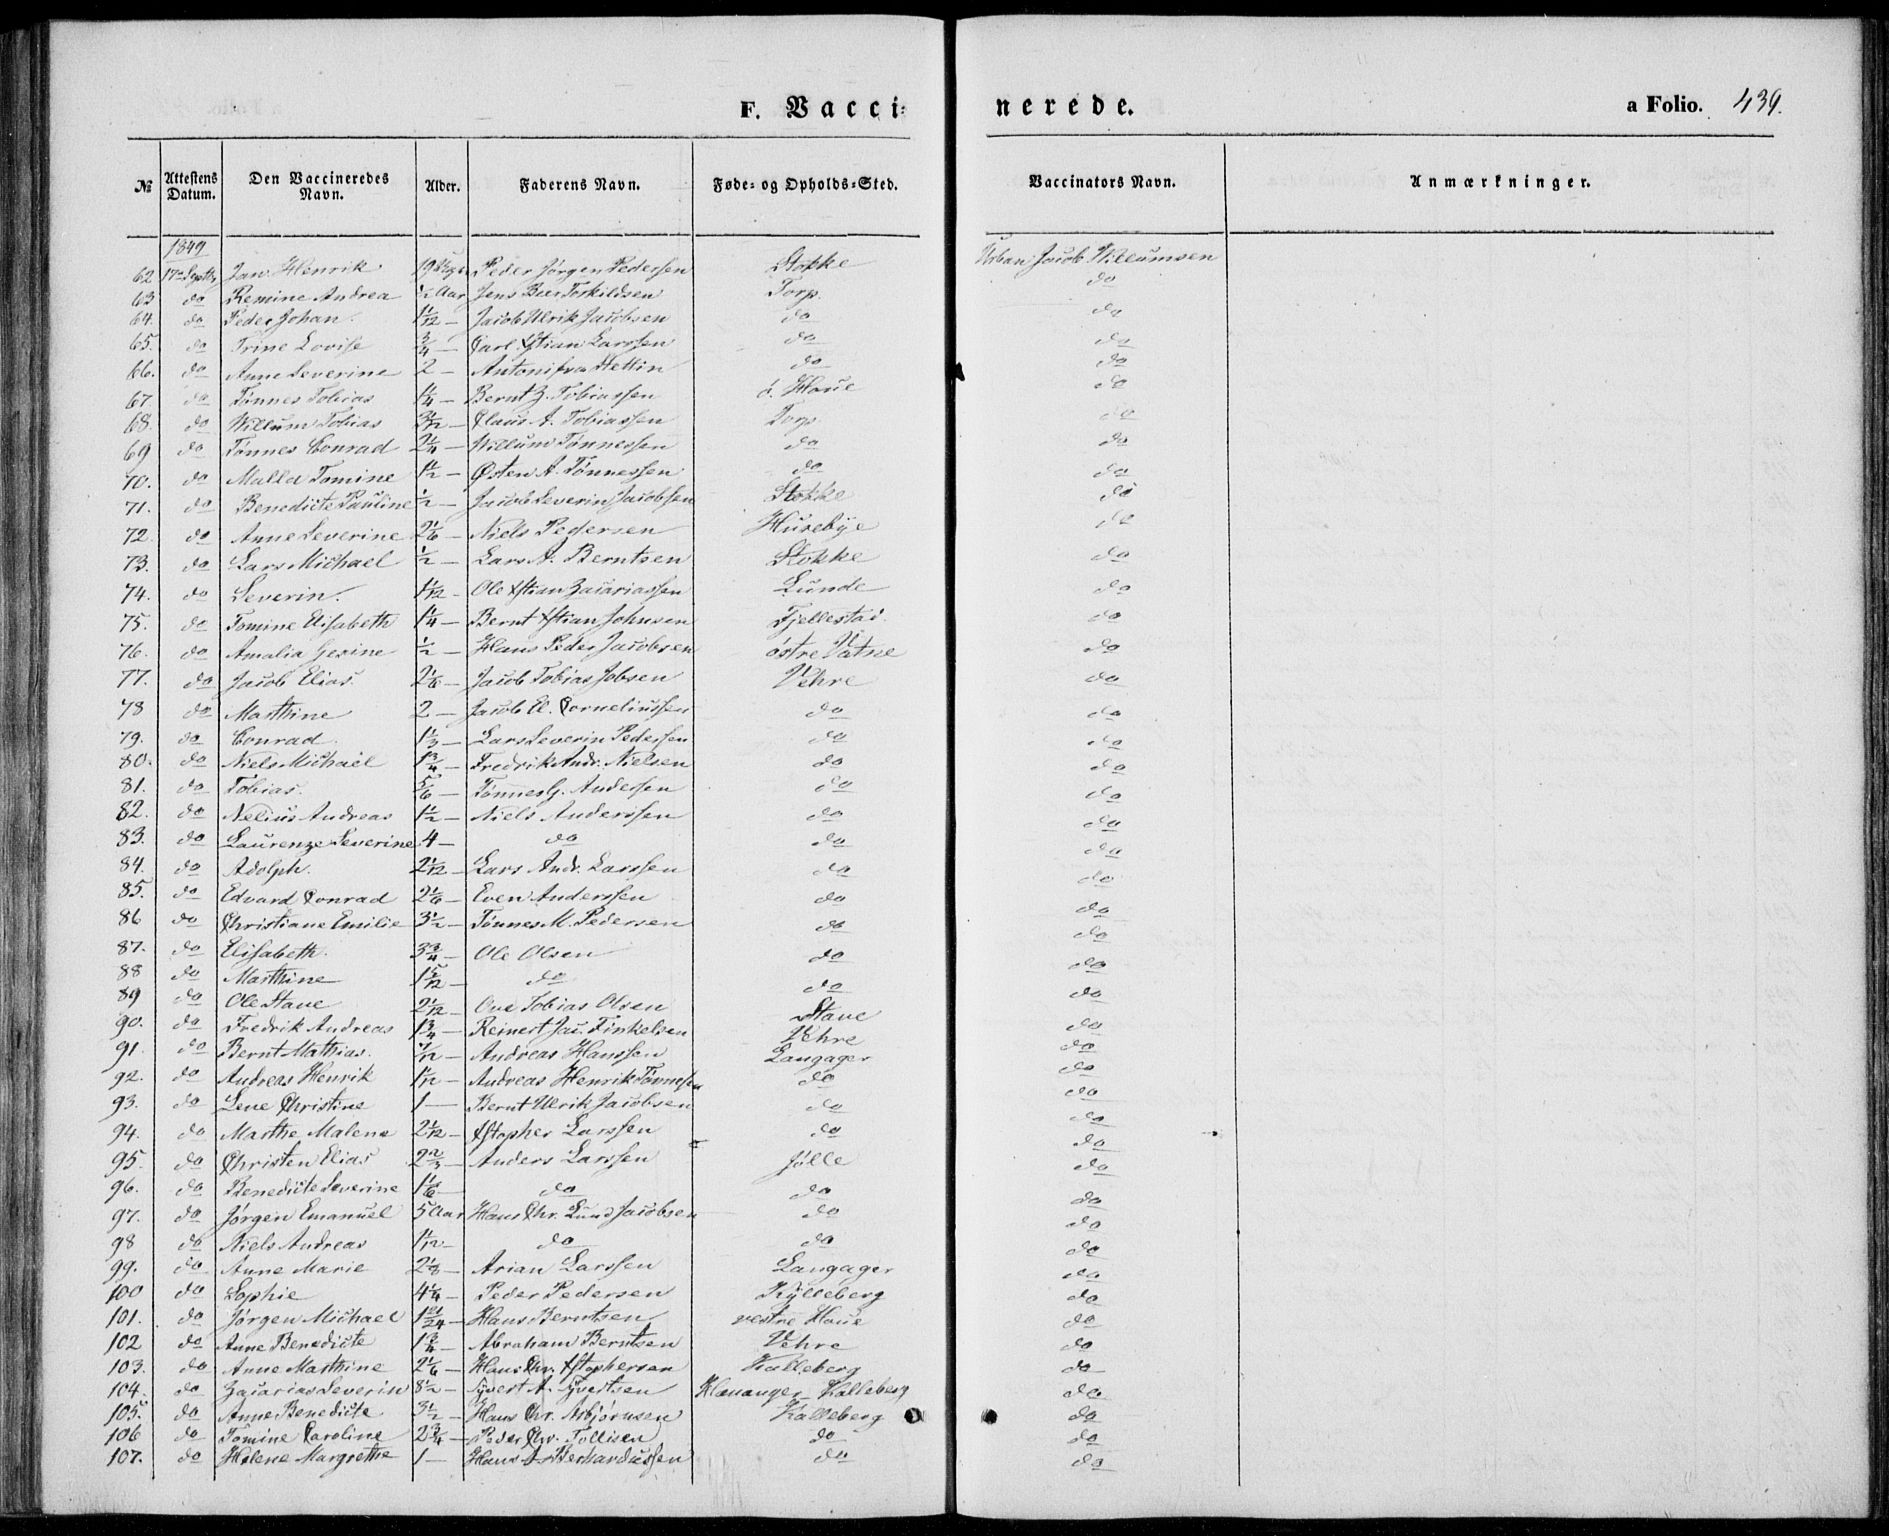 F. Vacci-nerede. a Folio. 439.
№ Attestens Datum. Den Vaccineredes Navn. Alder. Faderens Navn. Føde- og Opholds-Sted. Vaccinators Navn. Anmærkninger.
1849
62 17de Septbr Jan Henrik 19 Peder Jørgen Pedersen Stokke Urban Jacob Willumsen
63 do Remine Andrea ½ Aar Jens Torkildsen Torp. do
64. do Peder Johan. 1 1/12 – Jacob Ulrik Jacobsen do do
65. do Trine Lovise 3/4 – Carl Xstian Larssen do do
66. do Anne Severine 2 – Antoni fra Stettin do do
67. do Tønnes Tobias 1 1/4 – Bernt Z. Tobiassen ö. Haue do
68. do Willum Tobias 3 1/12 – Claus A. Tobiassen Torp do
69 do Tønnes Conrad 2 1/4 – Willum Tønnessen do do
70. do Malla Tomine 1 1/2 – Østen A. Tønnessen do do
71. do Benedicte Pauline 1/2 – Jacob Severin Jacobsen Stokke do
72. do Anne Severine 2 1/6 – Niels Pedersen Husebÿe do
73. do Lars Michael 1/2 – Lars A. Berntsen Stokke do
74. do Severin. 1 1/12 – Ole Xstian Zacariassen Lunde do
75. do Tomine Elisabeth 1 1/4 – Bernt Xstian Johnsen Fjellestad. do
76. do Amalia Gesine 1/2 – Hans Peder Jacobsen östre Vatne do
77. do Jacob Elias. 2 1/6 – Jacob Tobias Jobsen Vehre do
78 do Marthine 2 – Jacob El. Corneliussen do do
79. do Conrad. 1 1/3 – Lars Severin Pedersen do do
80. do Niels Michael 1 3/4 – Fredrik Andr. Nielsen do do
81. do Tobias. 5/6 – Tønnes G. Andersen do do
82. do Nelius Andreas 1 1/2 – Niels Anderssen do do
83. do Laurenze Severine 4 – do do do
84. do Adolph. 2 1/12 – Lars Andr. Larssen do do
85. do Edvard Conrad 2 1/6 – Even Anderssen do do
86 do Christiane Emilie 3 1/2 – Tønnes M. Pedersen do do
87. do Elisabeth. 3 3/4 – Ole Olsen do do
88 do Marthine 1 5/12 – do do do
89 do Ole Stave 2 1/12 – Ove Tobias Olsen Stave do
90. do Fredrik Andreas 1 3/4 – Reinert Jac. Finkelsen Vehre do
91. do Bernt Mathias. 7/12 – Andreas Hanssen Langager do
92. do Andreas Henrik 1 1/12 – Andreas Henrik Tønnesen do do
93. do Lene Christine 1 – Bernt Ulrik Jacobsen do do
94. do Marthe Malene 2 1/12 – Xstopher Larssen do do
95. do Christen Elias 2 2/3 – Anders Larssen Jölle do
96. do Benedicte Severine 1 1/6 – do do do
97. do Jørgen Emanuel 5 Aar Hans Chr. Lund Jacobsen do do
98 do Niels Andreas 1 1/12 – do do do
99. do Anne Marie 2 1/8 – Arian Larssen Langager do
100 do Sophie 4 1/4 – Peder Pedersen Kÿlleberg do
101. do Jørgen Michael 1 /24 – Hans Berntsen vestre Haue do
102 do Anne Benedicte 1 3/4 – Abraham Berntsen Vehre do
103. do Anne Marthine 2 1/6 – Hans Chr. Xstophersen Kalleberg do
104. do Zacarias Severin 8 1/2 – Syvert A. Syvertsen Hauanger – Kalleberg do
105. do Anne Benedicte 3 1/2 – Hans Chr. Asbjørnsen Kalleberg do
106 do Tomine Caroline 2 3/4 – Peder Chr. Tollisen do do
107. do Helene Margrethe 1 – Hans A. Berhardussen do do